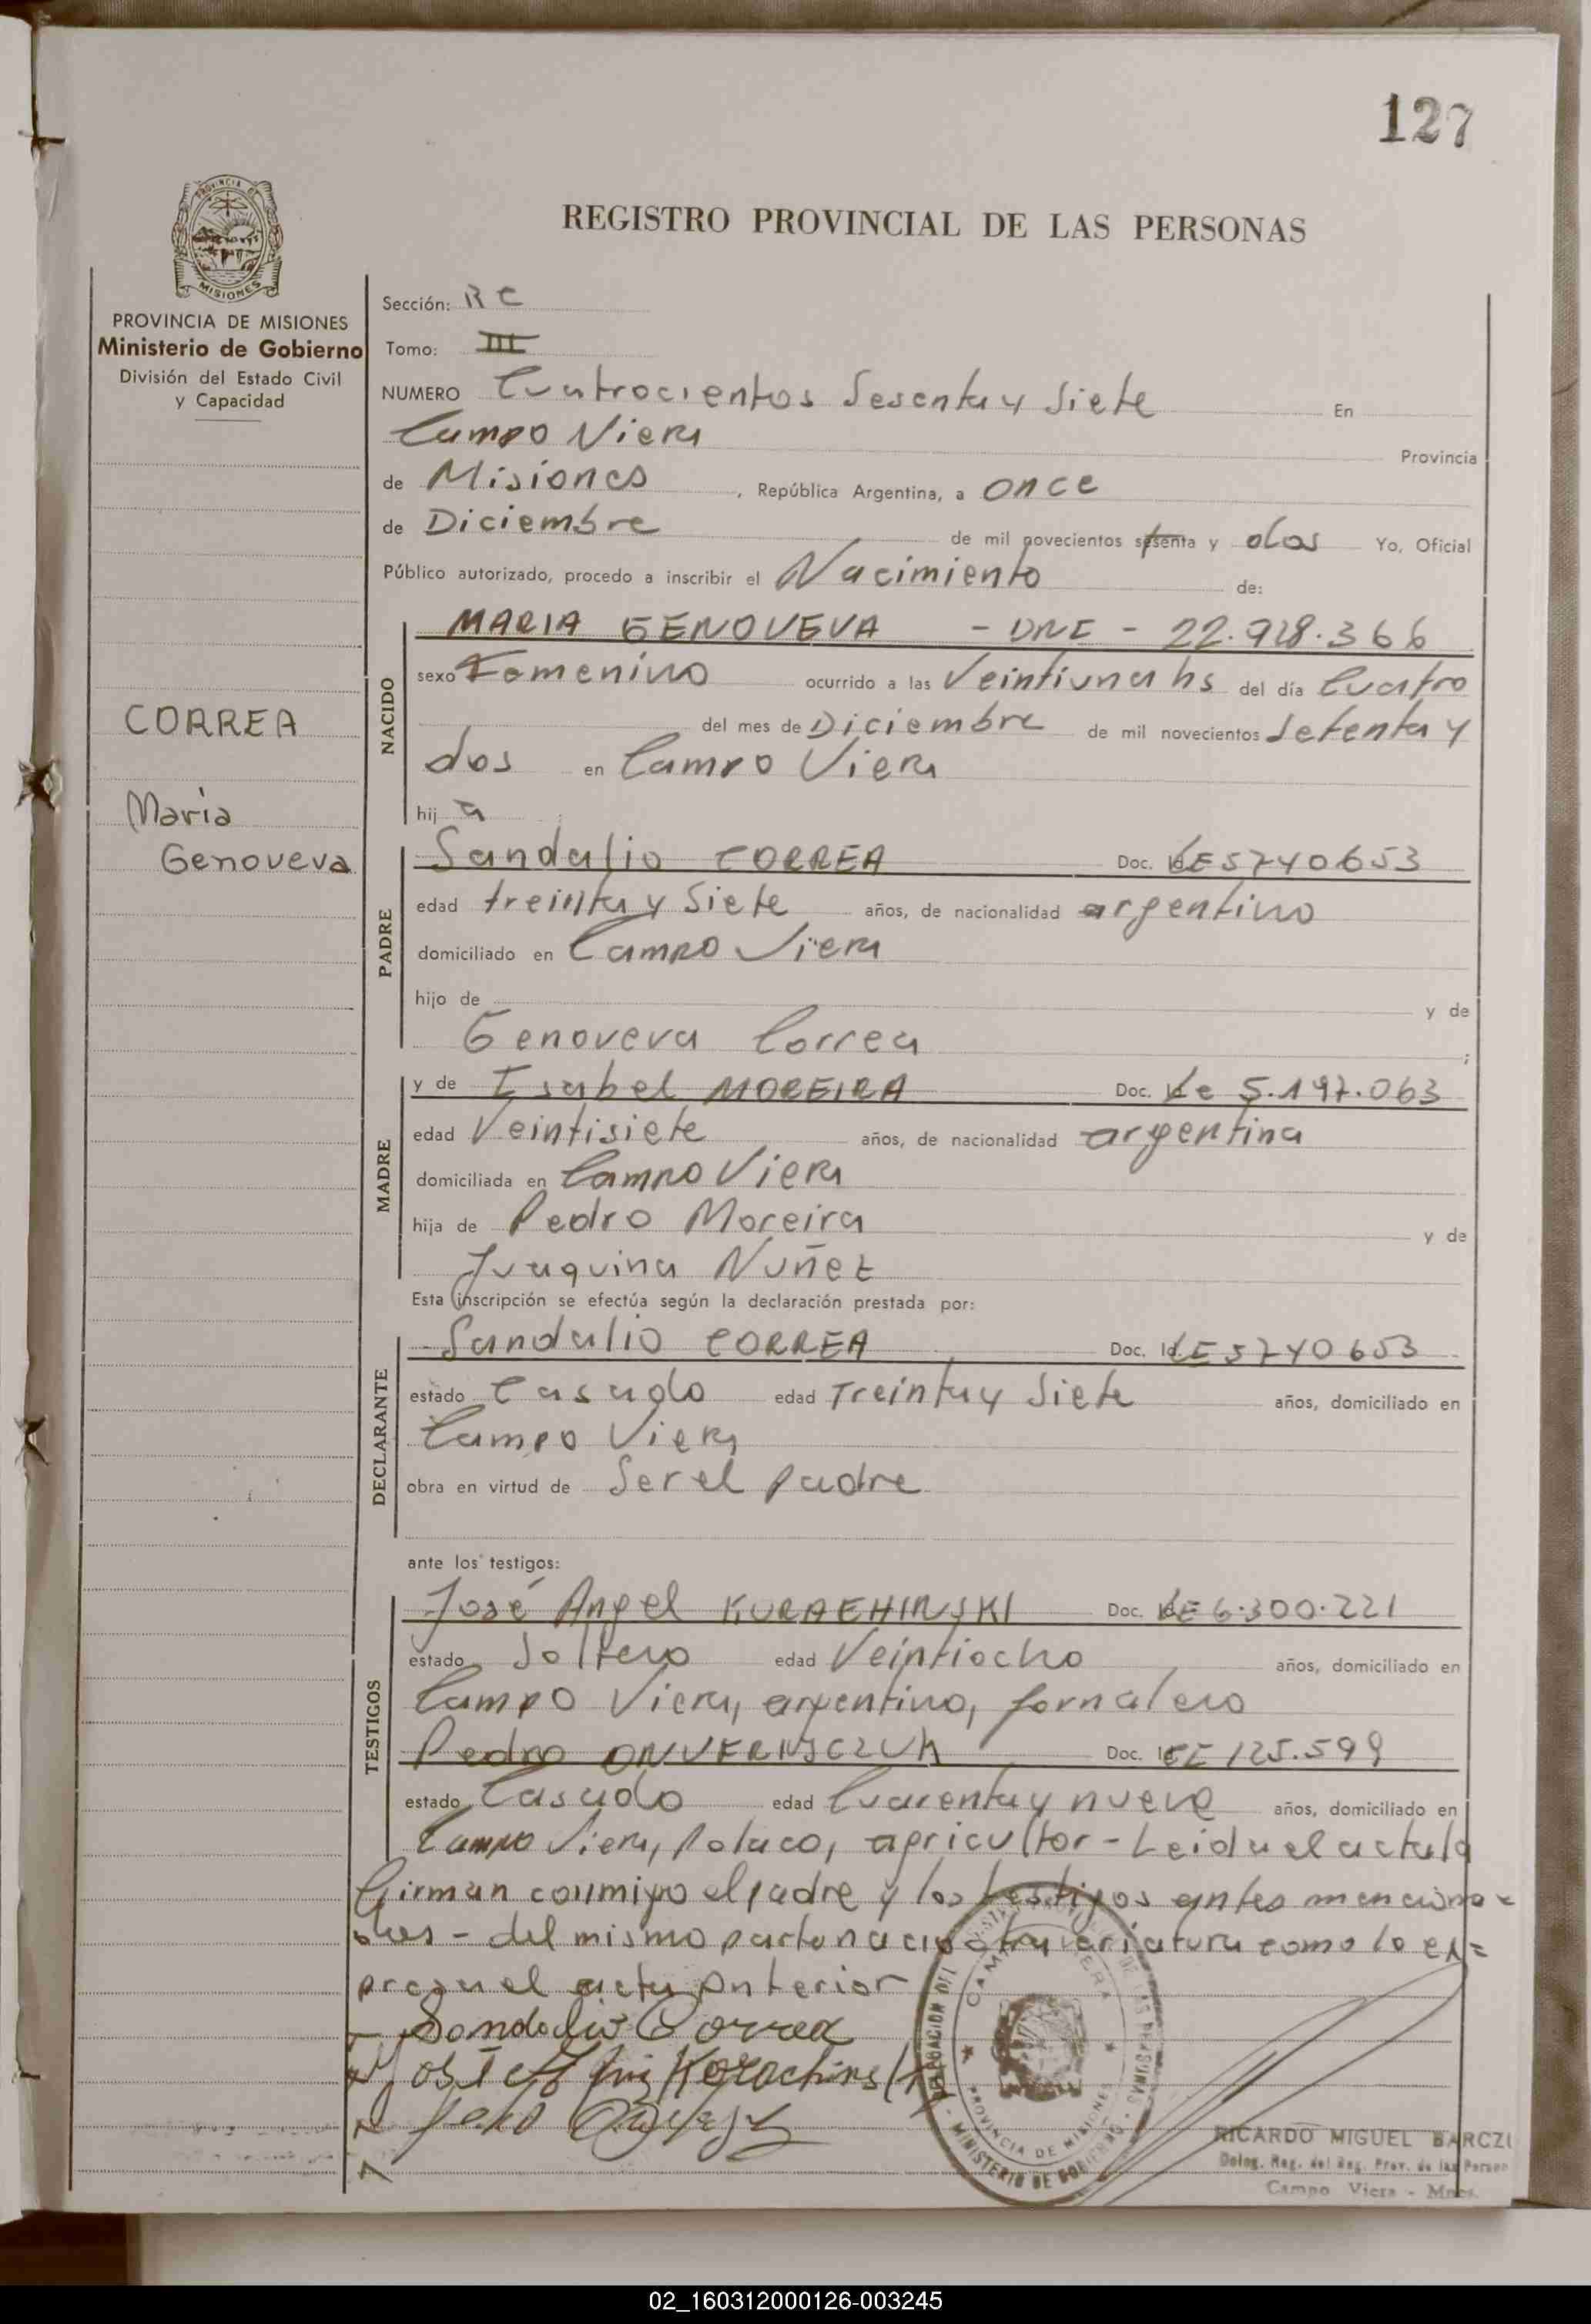 127
REGISTRO PROVINCIAL DE LAS PERSONAS
PROVINCIA DE
MISIONES
PROVINCIA DE MISIONES
Ministerio de Gobierno
División del Estado Civil
y Capacidad
CORREA
Maria
Genoveva
Sección: RC
Tomo: III
NUMERO Cuatrocientos Sesenta y Siete En
Campo Viera Provincia
de Misiones, República Argentina, a once
de Diciembre de mil novecientos sesenta y dos Yo, Oficial
Público autorizado, procedo a inscribir el Nacimiento de:
NACIDO
MARIA GENOVEVA - DNI - 22.928.366
sexo Femenino ocurrido a las Veintiuna hs del día Cuatro
del mes de Diciembre de mil novecientos Setenta y
dos en Campo Viera
hij a
PADRE
Sandalio CORREA Doc. LE 5740653
edad treinta y Siete años, de nacionalidad argentino
domiciliado en Campo Viera
hijo de y de
Genoveva Correa ;
MADRE
y de Isabel MOREIRA Doc. Le 5.197.063
edad Veintisiete años, de nacionalidad argentina
domiciliada en Campo Viera
hija de Pedro Moreira y de
Juaquina Nuñez
Esta inscripción se efectúa según la declaración prestada por:
DECLARANTE
Sandalio CORREA Doc. Id LE 5740653
estado Casado edad Treinta y Siete años, domiciliado en
Campo Viera
obra en virtud de Ser el padre
ante los testigos:
TESTIGOS
José Angel KURAEHINSKI Doc. LE 6.300.221
estado Soltero edad Veintiocho años, domiciliado en
Campo Viera, argentino, jornalero
Pedro Doc. 125.599
estado Casado edad Cuarenta y nueve años, domiciliado en
Campo Viera, Polaco, agricultor - Leida el acta la
Firman conmigo el padre y los testigos antes menciona=
dos - del mismo parto nacio otra criatura como lo ex=
presa el acta anterior
Sandalio Correa
DELEGACION DEL REGISTRO PROVINCIAL DE LAS PERSONAS
CAMPO VIERA
PROVINCIA DE MISIONES
MINISTERIO DE GOBIERNO
RICARDO MIGUEL BARCZU
Deleg. Reg. del Reg. Prov. de las Person
Campo Viera - Mnes.
02_160312000126-003245